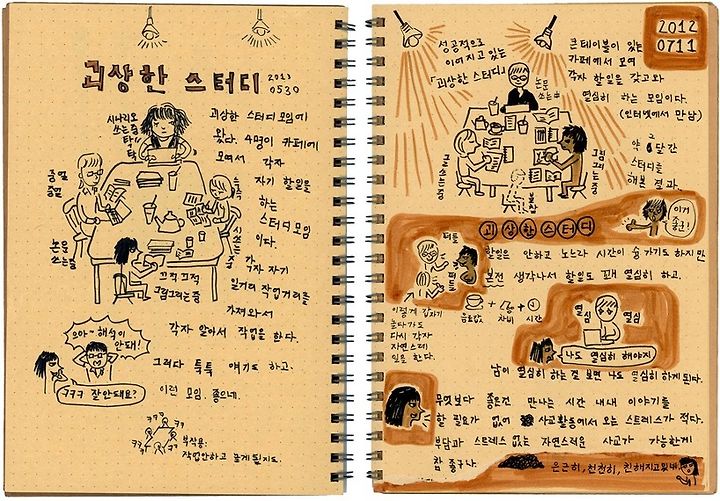 괴상한 스터디 2013
0530
시나리오
쓰는중
탁
탁
괴상한 스터디 모임에
왔다. 4명이 카페에
모여서 각자
자기 할일을
하는
스터디 모임
이다.
각자 자기
일거리 작업거리를
가져와서
각자 알아서 작업을 한다.
그러다 툭툭 얘기도 하고.
이런 모임. 좋으네.
중얼
중얼
논문
쓰는중
끄적 끄적
그림그리는중
으아~ 해석이
안돼!
ㅋㅋㅋ 잘안돼요?
ㅋㅋ
ㅋㅋ
ㅋㅋ
부작용:
작업안하고 놀게 될지도.
2012
0711
성공적으로
이어지고있는
「괴상한 스터디」
큰테이블이 있는
카페에서 모여
각자 할일을 갖고와
열심히 하는 모임이다.
(인터넷에서 만남)
논문
쓰는中
그림
그리는중
약 2달간
스터디를
해본 결과.
괴상한 스터디
이거
좋군!
할일은 안하고 노느라 시간이 술 가기도 하지만
본전 생각나서 할일도 꽤 열심히 하고.
음료값
차비
시간
이렇게 갑자기
놀다가도
다시 각자
자연스레
일을 한다.
열심
열심
나도 열심히 해야지
남이 열심히하는걸 보면 나도 열심히 하게된다.
무엇보다 좋은건 만나는 시간 내내 이야기를
할 필요가 없어 사교활동에서 오는 스트레스가 적다.
부담과 스트레스 없는 자연스러운 사교가 가능한게
참 좋구나
은근히, 천천히, 친해지고있네